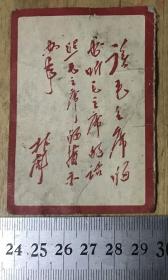 读毛主席的书
听毛主席的话
照毛主席的指示
办事
林彪
24 25 26 27 28 29 30 31 32